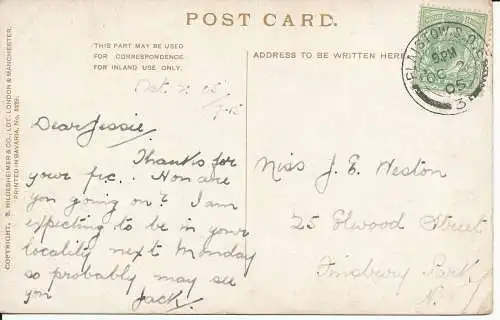 POST CARD.
THIS PART MAY BE USED
FOR CORRESPONDENCE
FOR INLAND USE ONLY.
ADDRESS TO BE WRITTEN HERE
PLAISTOW S.O.
5 PM
OC 2
05
3
COPYRIGHT, S. HILDESHEIMER & CO., LDT. LONDON & MANCHESTER.
PRINTED IN BAVARIA, No.
Oct 2. 05
7-15
Dear Jessie,
Thanks for
your p.c.. How are
you going on? I am
expecting to be in your
locality next Monday
so probably may see
you Jack.
Miss J. E. Weston
25 Elwood Street
Finsbury Park
N.